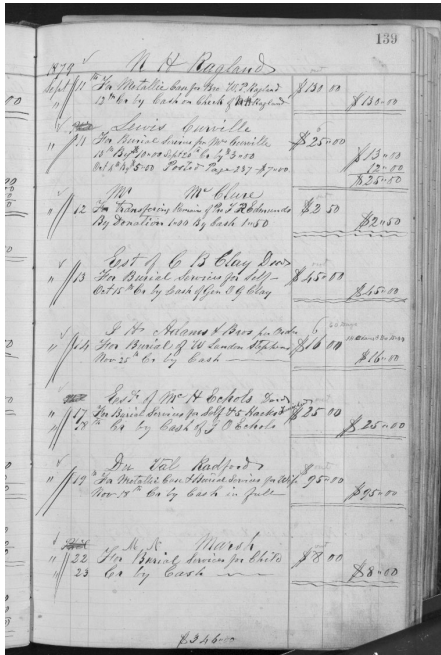 139
1879 N H Ragland
Sept 11th For Metallic Case for Mrs W. P. Ragland $130.00
12th Cr By Cash on Check of N H Ragland $130.00
Lewis
" 11 For Burial Services for Mrs $25.00
13th By $10.00 Sept 26th Cr By $3.00 $13.00
Oct 8th By $5.00 Posted Page 237 $7.00 12.00
$25.00
Mr McClure
" 12 For Transfering Remains of J R Edmunds $2.50
By Donation 1.00 By Cash 1.50 $2.50
Est of C B Clay Decd
" 13 For Burial Services for Self $45.00
Oct 15th Cr by Cash of Gen O G Clay $45.00
J H Adams & Bros per Order 20 Days
" 14 For Burial of W Landon Stephens $16.00
Nov 25th Cr by Cash $16.00
Est of Mc H Echols Decd
" 17 For Burial Services for Self & 5 Hacks $25.00
" 18th Cr by Cash of J O Echols $25.00
Dr Tal Radford
" 19th For Metallic Case & Burial Services for Wife $95.00
Nov 18th Cr by Cash in full $95.00
M K Marsh
" 22 For Burial Services for Child $8.00
" 23 Cr by Cash $8.00
$346.00